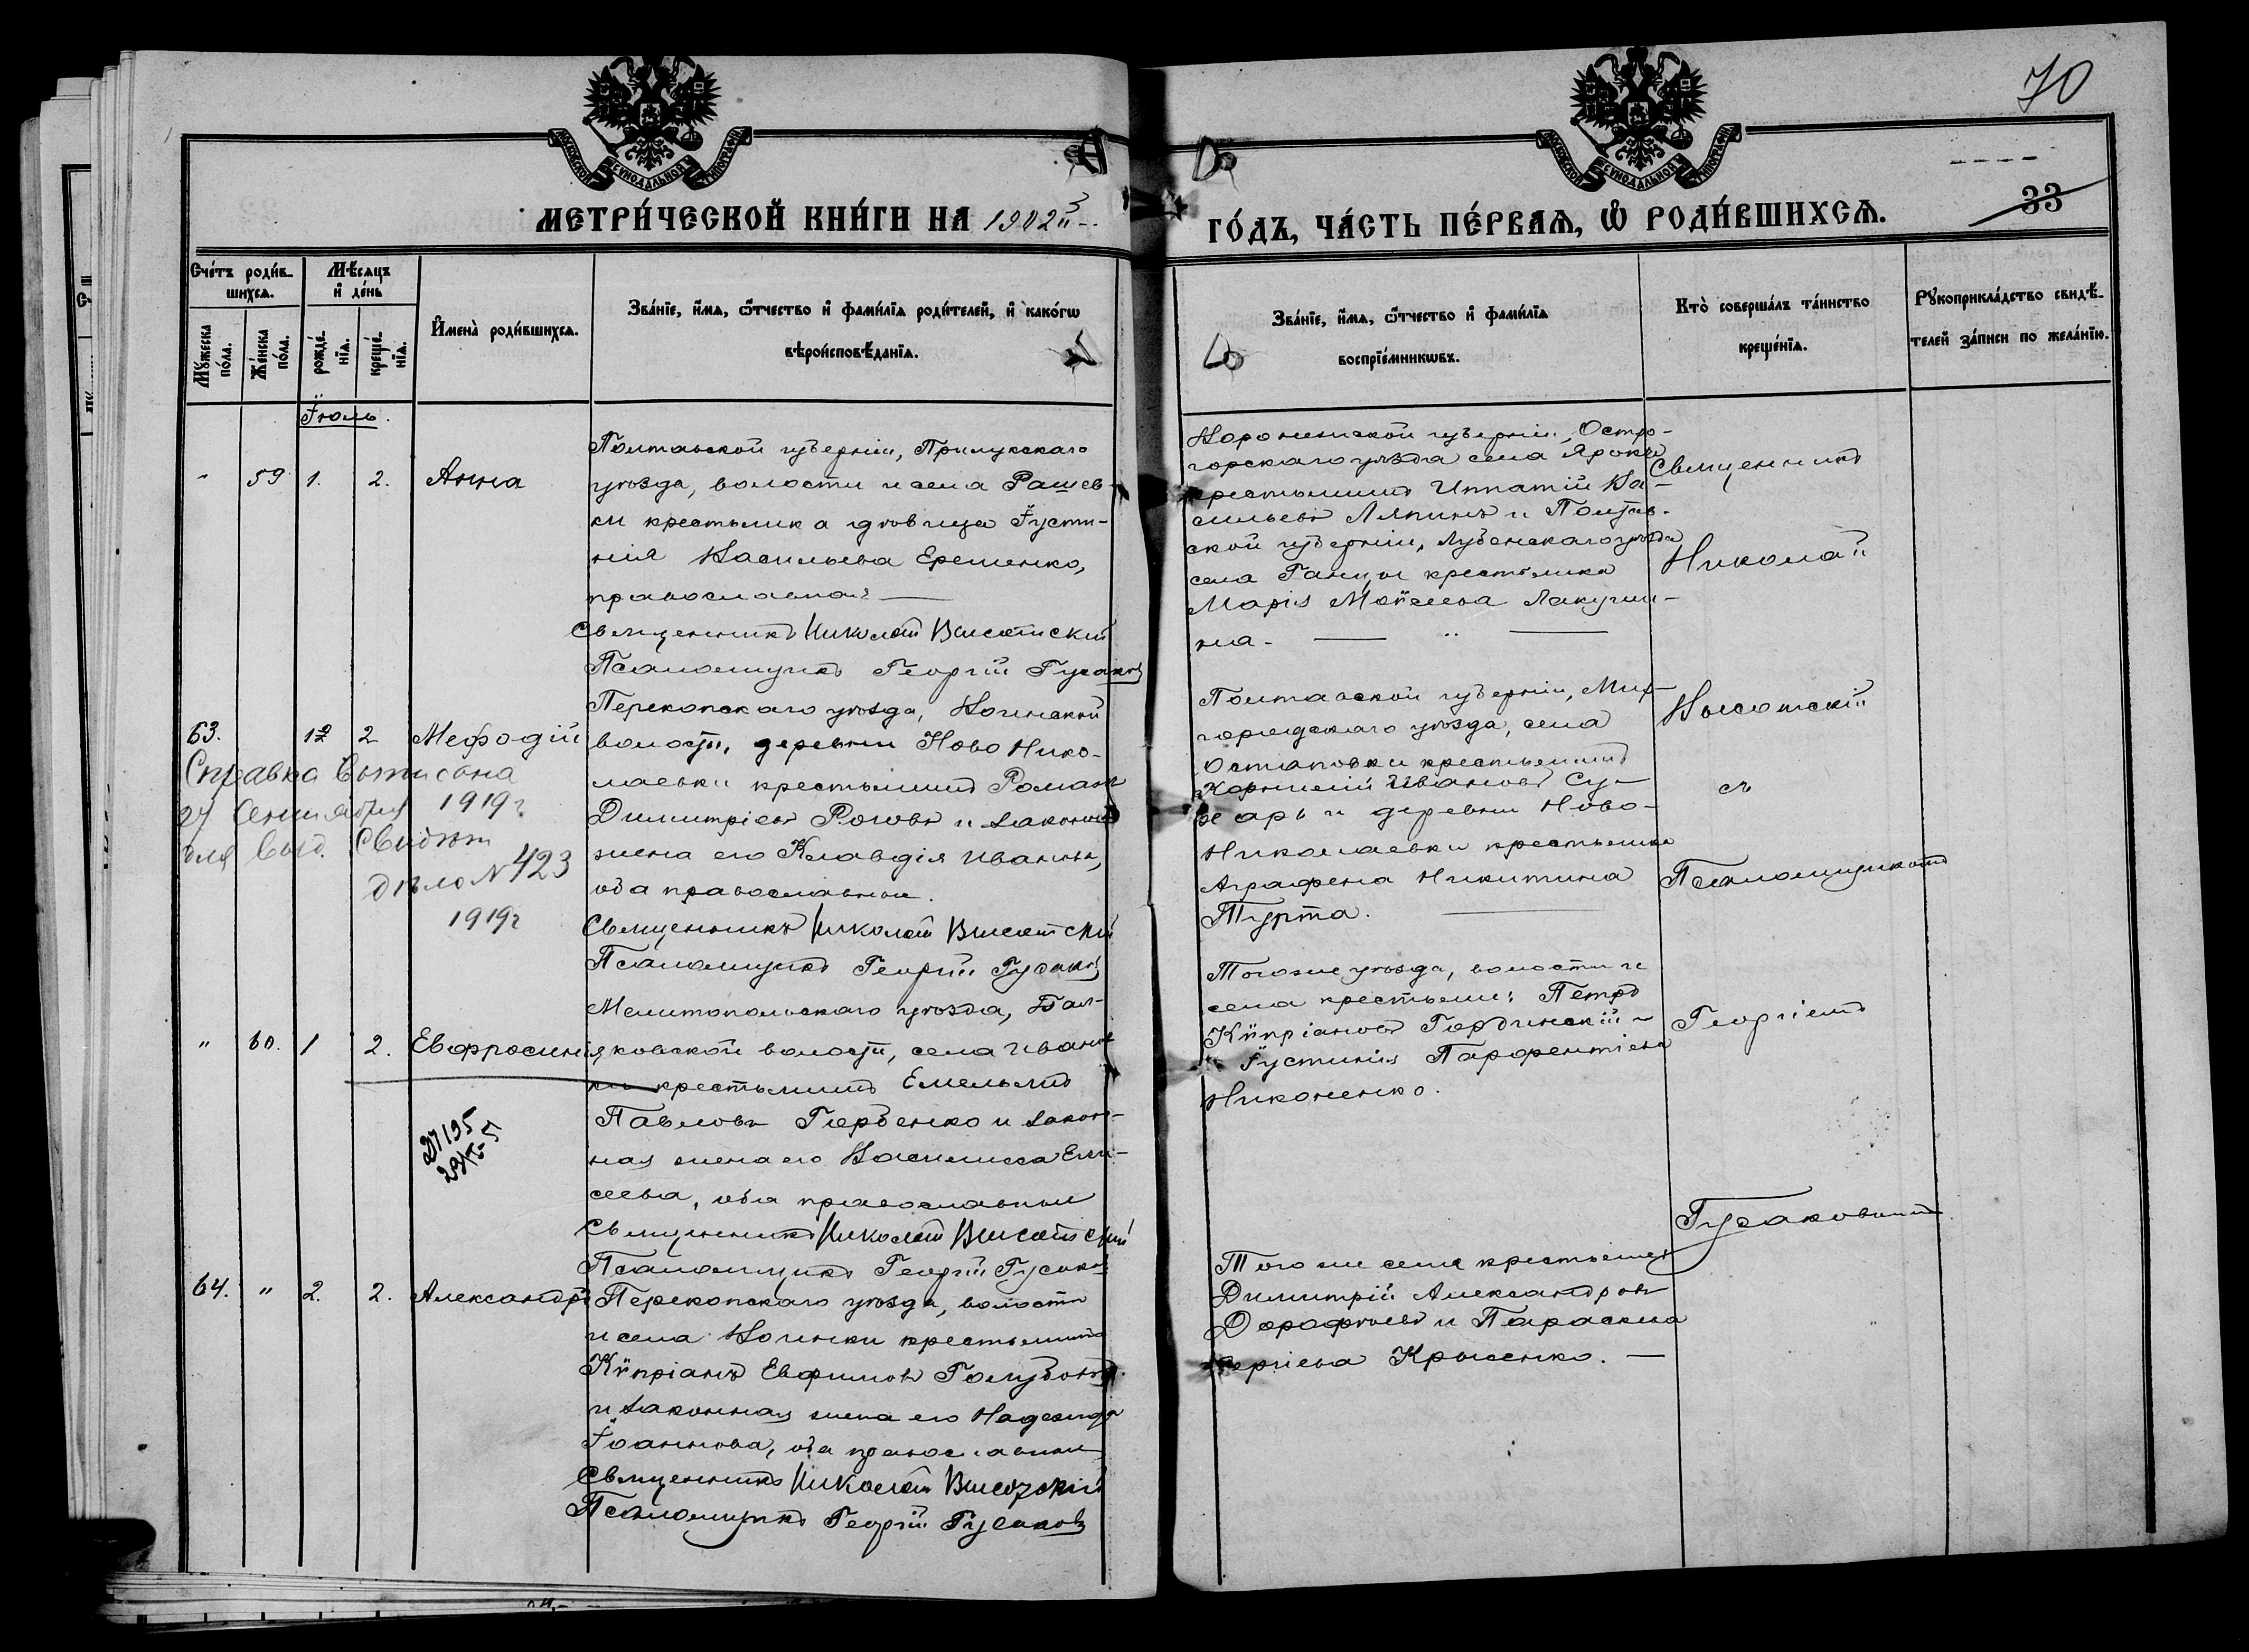 70
МОСКОВСКОЙ СѴНОДАЛЬНОЙ ТИПОГРАФІИ
МОСКОВСКОЙ СѴНОДАЛЬНОЙ ТИПОГРАФІИ
МЕТРИ́ЧЕСКОЙ КНИ́ГИ НА 1902й
ГО́ДЪ, ЧА́СТЬ ПЕ́РВАѦ, Ѡ҆ РОДИ́ВШИХСѦ.
33
Сче́тъ роди́в-
шихсѧ.
Мꙋ́жеска по́ла.
Же́нска по́ла.
Мѣ́сѧцъ
и҆ де́нь
рожде́-
нїѧ.
креще́-
нїѧ.
И҆мена̀ роди́вшихсѧ.
Зва́нїе, и҆́мѧ, ѻ҆́тчество и҆ фами́лїѧ роди́телей, и҆ како́гѡ
вѣроисповѣ́данїѧ.
Зва́нїе, и҆́мѧ, ѻ҆́тчество и҆ фами́лїѧ
воспрїе́мникѡвъ.
Кто̀ соверша́лъ та́инство
креще́нїѧ.
Рꙋкоприкла́дство свидѣ́-
телей за́писи по жела́нїю.
Іюль.
" 59 1. 2. Анна
Полтавской губерніи, Прилукскаго
уѣзда, волости и села Рашев-
ки крестьянка вдовица Іусти-
нія Васильева Ерешенко,
православная
Священникъ Николай Высотскій
Псаломщикъ Георгій Гусаковъ
Воронежской губерніи, Остро-
горскаго уѣзда села Яровки
крестьянинъ Ипатій Ва-
сильевъ Ляпинъ и Полтав-
ской губерніи, Лубенскаго уѣзда
села Ганцы крестьянка
Марія Моѵсеева Лакуши-
на.
63. 12 2 Меѳодій
Перекопскаго уѣзда, Воинской
волости, деревни Ново Нико-
лаевки крестьянинъ Романъ
Димитріевъ Роговъ и законная
жена его Клавдія Иванова,
оба православные.
Священникъ Николай Высотскій
Псаломщикъ Георгій Гусаковъ
Справка выписана
27 Сентября 1919 г
для выд. Свидѣт
дѣло № 423
1919 г
Полтавской губерніи, Мир-
городскаго уѣзда, села
Остаповки крестьянинъ
Корнилій Ивановъ Су-
харь и деревни Ново-
Николаевки крестьянка
Аграфена Никитина
Турта.
" 60. 1 2. Евфросинія
Мелитопольскаго уѣзда, Бал-
ковской волости, села Иванов
ки крестьянинъ Емельянъ
Павловъ Горбенко и закон-
ная жена его Василисса Ели-
сеева, оба православные
Священникъ Николай Высотскій
Псаломщикъ Георгій Гусаковъ
Тогоже уѣзда, волости и
села крестьяне: Петръ
Кѵпріановъ Гордынскій и
Іустинія Парфентіева
Никоненко.
64. " 2. 2. Александръ
Перекопскаго уѣзда, волости
и села Воинки крестьянинъ
Кѵпріанъ Евфимовъ Голубовъ
и законная жена его Надежда
Іоаннова, оба православные
Священникъ Николай Высотскій
Псаломщикъ Георгій Гусаковъ
Того же села крестьяне
Димитрій Александровъ
Дорофѣевъ и Параскева
Сергіева Крысенко.
Священникъ
Николай
Высотскій
съ
Псаломщикомъ
Георгіемъ
Гусаковымъ